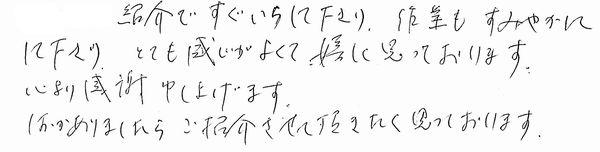 紹介ですぐいらして下さり、作業もすみやかに
して下さり、とても感じがよくて、嬉しく思っております。
心より感謝申し上げます。
ほかありましたらご紹介させて頂きたく思っております。